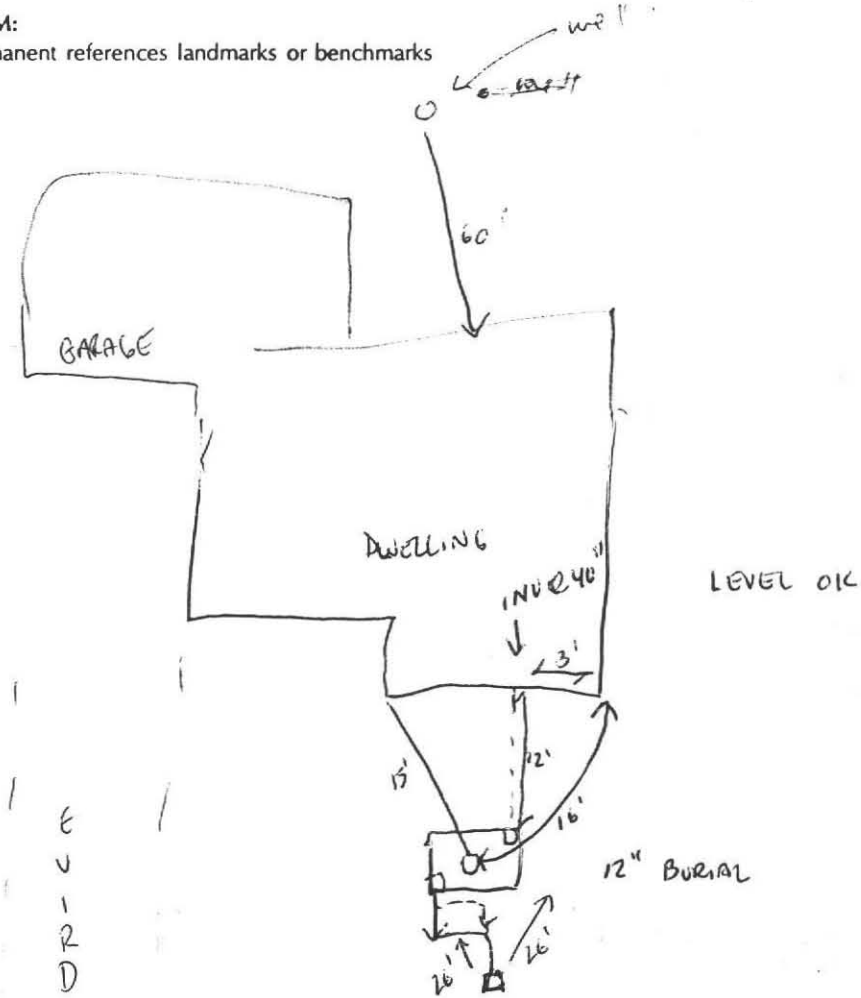 M:
nanent references landmarks or benchmarks
well
60'
GARAGE
DWELLING
INVER 40"
LEVEL OK
3'
15'
12'
16'
12" BURIAL
E
V
I
R
D
26'
26'